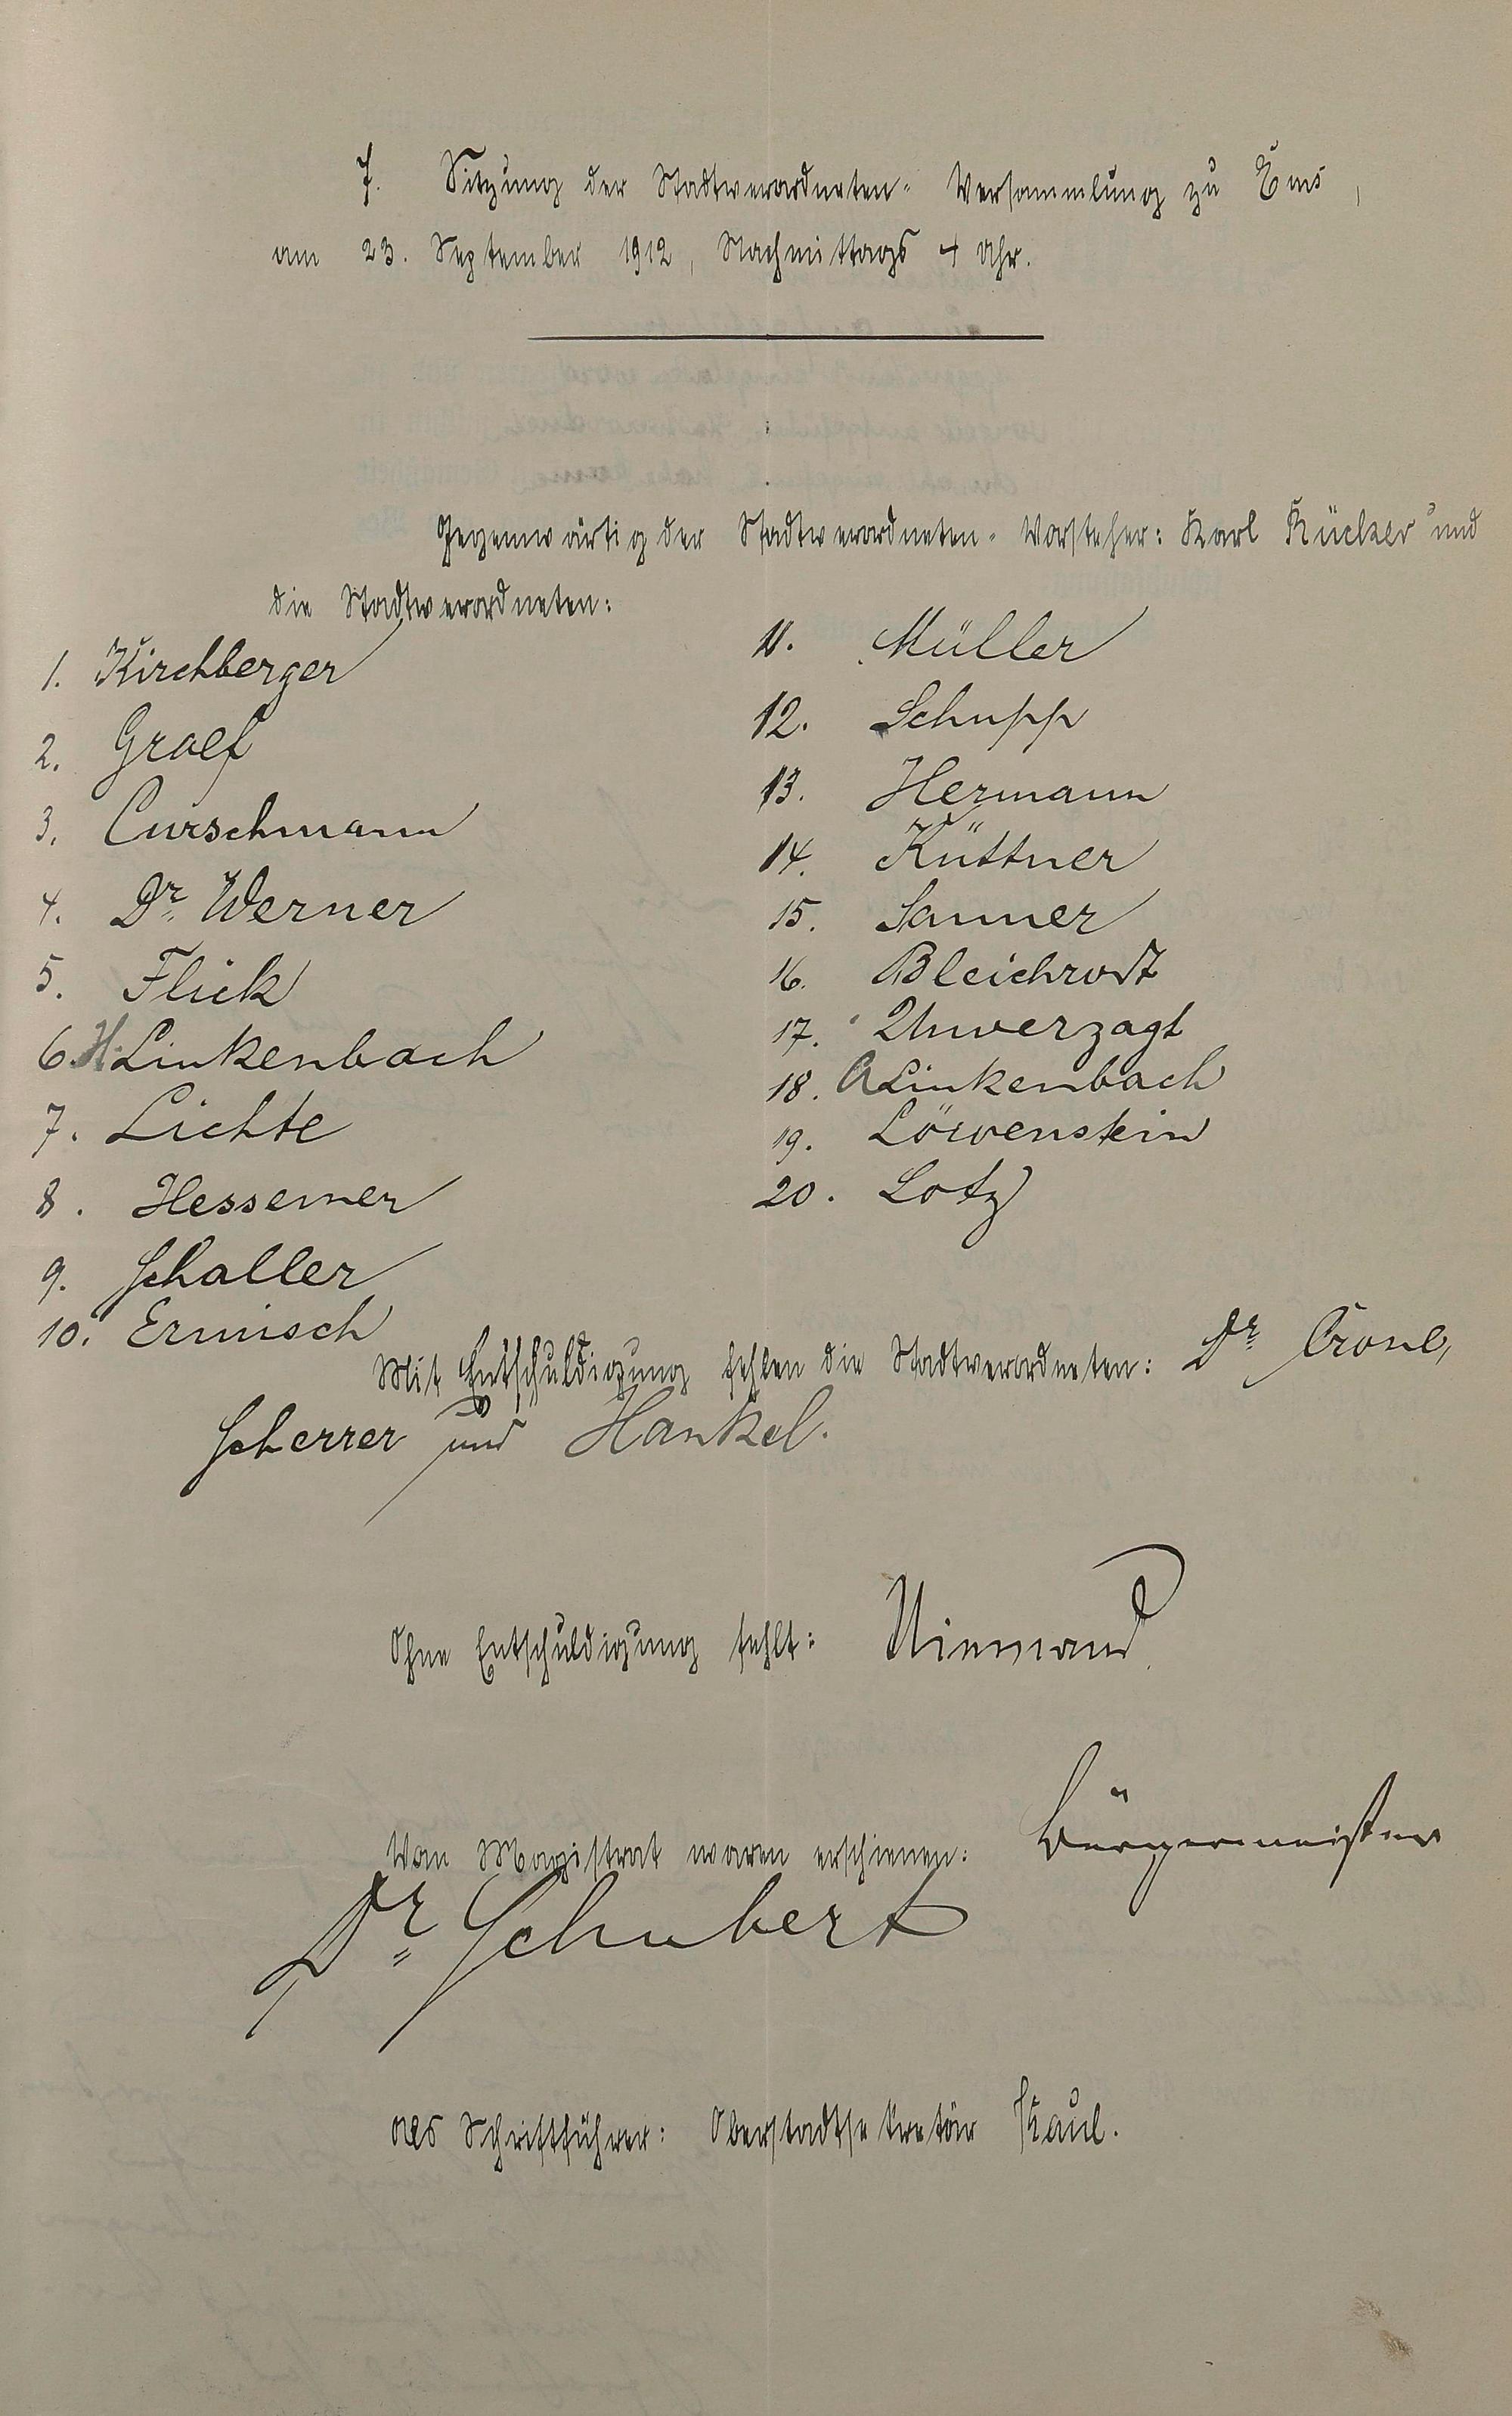 7. Sitzung der Stadtverordneten-Versammlung zu Ems,
am 23. September 1912, Nachmittags 4 Uhr.
Gegenwärtig der Stadtverordneten-Vorsteher: Karl Rücker und
die Stadtverordneten:
1. Kirchberger
2. Graef
3. Curschmann
4. Dr. Werner
5. Flick
6. H. Linkenbach
7. Lichte
8. Hessemer
9. Schaller
10. Ermisch
11. Müller
12. Schupp
13. Hermann
14. Küttner
15. Sanner
16. Bleichrodt
17. Unverzagt
18. A Linkenbach
19. Löwenstein
20. Lotz
Mit Entschuldigung fehlen die Stadtverordneten: Dr. Crone,
Scherrer und Hankel.
Ohne Entschuldigung fehlt: Niemand.
Vom Magistrat waren erschienen: Bürgermeister
Dr. Schubert
Als Schriftführer: Oberstadtsekretär Kaul.